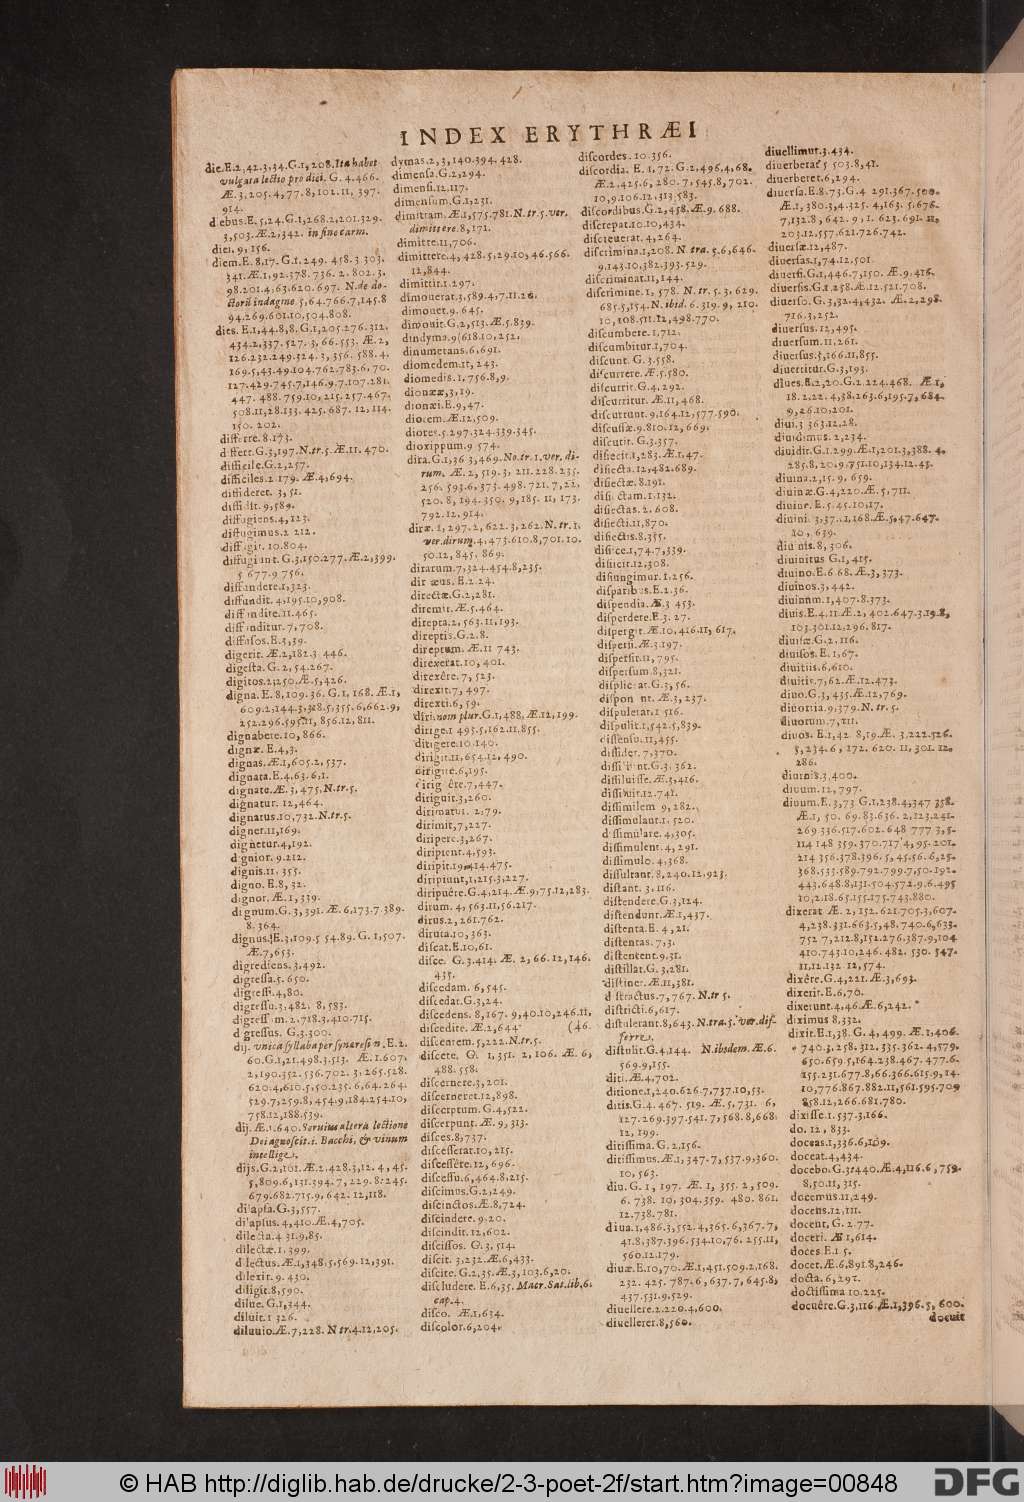 INDEX ERYTHRÆI
die.E.2,42.3,34.G.1,208.Ita habet
vulgata lectio pro diei. G. 4.466.
Æ.3,205.4,77.8,102.11, 397.
914.
diebus.E.5,24.G.1,268.2,201.329.
3,503.Æ.2,342. in fine carm.
diei. 9, 156.
diem.E.8,17.G.1,249. 458.3 303.
341.Æ.1,92.378.736. 2. 802.3.
98.201.4,63.620.697. N.de do-
ctoris indagine.5,64.766.7,145.8
94.269.601.10,504.808.
dies. E.1,44.8,8.G.1,205.276.312.
434.2,337.527.3, 66.553. Æ.2,
126.232.249.324.3,356. 588.4.
169.5,43.49.104.762.783.6, 70.
127.429.745.7,146.9.7.107.281.
447. 488.759.10, 215.257.467.
508.11,28.133.425.687. 12,114.
150. 202.
differre.8.173.
differt.G.3,197.N.tr.5.Æ.11. 470.
difficile.G.2,257.
difficiles.2 179. Æ.4,694.
diffideret. 3, 51.
diffidit.9,589.
diffugiens.4,123.
diffugimus.2 212.
diffugit. 10.804.
diffugiunt.G.3,150.277.Æ.2,399.
5 677.9 756.
diffundere.1,323.
diffundit. 4,195.10,908.
diffundite.11.465.
diffunditur.7,708.
diffusos.E.3,39.
digerit. Æ.2,182.3 446.
digesta. G. 2, 54.267.
digitos.2,250.Æ.5,426.
digna. E. 8,109.36. G.1, 168. Æ.1,
609.2,144.3,318.5,355.6,662.9,
252.296.595.11, 856.12, 811.
dignabere.10, 866.
dignæ. E.4,3.
dignas.Æ.1,605.2, 537.
dignata.E.4,63.6,1.
dignate.Æ.3, 475.N.tr.5.
dignatur. 12,464.
dignatus.10,732.N.tr.5.
digner.11,169.
dignetur.4,192.
dignior. 9.212.
dignis.11. 355.
digno. E.8, 32.
dignor.Æ.1, 339.
dignum.G. 3, 391. Æ. 6,173.7.389.
8. 364.
dignus.E.3,109.5 54.89. G. 1,507.
Æ.7,653.
digrediens.3,492.
digressa.5. 650.
digressi.4,80.
digressu.3,482. 8, 583.
digressum.2.718.3,410.715.
digressus. G.3.300.
dij. vnica syllaba per synæresin.E.2.
60.G.1,21.498.3.513. Æ.1.607.
2,190.352.536.702.3.265.528.
620.4,610.5,50.235.6,64.264.
529.7,259.8,454.9,184.254.10,
758.12,188.539.
dij.Æ.1.640.Seruius altera lectione
Dei agnoscit.i. Bacchi, & vinum
intellige.
dijs.G.2,101.Æ.2.428.3,12.4,45.
5,809.6,131.394.7,229.8.245.
679.682.715.9,642.12,118.
dilapsa.G.3,557.
dilapsus. 4,410.Æ.4,705.
dilecta.4 31.9,85.
dilectæ.1. 399.
dilectus.Æ.1,348.5.569.12,391.
dilexit. 9. 430.
diligit.8,590.
dilue. G.1,344.
diluit.1 326.
diluuio.Æ.7,228. N tr.4.12,205.
dymas.2,3,140.394. 428.
dimensa.G.2,294.
dimensi.12.117.
dimensum.G.1,231.
dimittam. Æ.1,575.781.N.tr.5.ver.
dimittere.8,171.
dimitte.11,706.
dimittere.4, 428.5,29.10,46.566.
12,844.
dimittit.1.297.
dimouerat.3,589.4,7.11.20.
dimouet.9. 645.
dimouit.G.2,513.Æ.5.839.
dindyma.9(618.10,252.
dinumerans.6,691.
diomedem.11, 243.
diomedis. 1. 756.8,9.
dionææ,3,19.
dionæi.E.9,47.
diorem.Æ.12,509.
diores.5.297.324.339.345.
dioxippum.9 574.
dira.G.1,36 3,469.No.tr.1.ver.di-
rum. Æ. 2,519.3, 211.228.235.
256. 593.6,373.498.721.7,22.
520. 8, 194.350. 9,185. 11, 173.
792.12.914.
diræ.1, 297.2, 622.3,262.N.tr.1.
ver.dirum.4,473.610.8,701.10.
50.12, 845. 869.
dirarum.7,324.454.8,235.
dircæus. E.2.24.
directæ.G.2,281.
diremit.Æ.5.464.
direpta.2, 563.11,193.
direptis.G.2.8.
direptum. Æ.11 743.
direxerat.10, 401.
direxêre.7, 523.
direxit.7, 497.
direxti.6, 59.
diri.nom plur.G.1,488,Æ.12,199.
dirige.1 495.5,162.11.855.
dirigere.10.140.
dirigit.11,654.12, 490.
dirigite.6,195.
dirigêre.7,447.
diriguit.3,260.
dirimatur. 2.79.
dirimit,7,227.
diripere.3,267.
diripient.4,593.
diripit.10.414.475.
diripiunt,1,215.3,227.
diripuêre.G.4,214.Æ.9,75.12,283.
dirum. 4,563.11,56.217.
dirus.2, 261.762.
diruta.10, 363.
discat.E.10,61.
disce. G.3.414.Æ. 2, 66.12,146.
435.
discedam. 6, 545.
discedat.G.3,24.
discedens. 8,167. 9,40.10,246.11,
discedite. Æ.2,644 (46.
discentem.5,222.N.tr.5.
discere. G. 1, 351. 2, 106. Æ. 6,
488.558.
discernere.3,201.
discerneret.12,898.
discerptum.G.4,522.
discerpunt. Æ. 9, 313.
disces.8,737.
discesserat.10, 215.
discessêre.12, 696.
discessu.6, 464.8,215.
discimus.G.2,249.
discinctos.Æ.8,724.
discindere. 9.20.
discindit.12,602.
discissos. G. 3, 514.
discit. 3,232.Æ.6,433.
discite.G.2,35.Æ.3,103.6,20.
discludere. E.6,35. Macr. Sat.lib.6.
cap.4.
disco. Æ.1,634.
discolor.6,204.
discordes. 10.356.
discordia. E. 1,72. G.2.496.4,68.
Æ.2.425.6, 280.7,545.8,702.
10,9.106.12,313.583.
discordibus.G.2,458.Æ.9. 688.
discrepat.10.10,434.
discreuerat. 4,264.
discrimina.1,208. N tra. 5.6,646.
9.143.10,382.393.529.
discriminat.11,144.
discrimine.1, 578. N tr.5.3, 629.
685.5,154.N. ibid. 6.319.9, 210.
10,108.511.12,498.770.
discumbere.1,712.
discumbitur.1,704.
discunt. G.3.558.
discurrere.Æ.5.580.
discurrit.G.4.292.
discurritur.Æ.11, 468.
discurrunt.9,164.12,577.590.
discussæ.9.810.12, 669.
discutit.G.3.357.
disiecit.1,283.Æ.1,47.
disiecta.12,482.689.
disiectæ.8.191.
disiectam.1.132.
disiectas.2. 608.
disiecti.11,870.
disiectis.8.355.
disiice.1,74.7,339.
disiicit.12,308.
disiungimur.1.256.
disparibus.E.2.36.
dispendia. Æ.3 453.
disperdere.E.3. 27.
dispergit.Æ.10,416.11,617.
disperii.Æ.3.197.
dispersit.11, 795.
dispersum.8,321.
displiceat.G.3,56.
disponunt.Æ.3,237.
dispulerat.1 516.
dispulit.1,542.5,839.
dissensu.11,455.
dissidet.7,370.
dissident.G.3. 362.
dissiluisse.Æ.3,416.
dissiluit.12.741.
dissimilem 9,282.
dissimulant.1. 520.
dissimulare.4,305.
dissimulent.4, 291.
dissimulo. 4,368.
dissultant.8,240.12.923.
distant. 3,116.
distendere.G.3,124.
distendunt.Æ.1,437.
distenta.E. 4, 21.
distentas.7,3.
distentent.9.31.
distillat.G. 3,281.
distinet.Æ.11,381.
distractus.7,767. N.tr 5.
districti.6,617.
distulerant.8,643. N.tra.5.ver.dis-
ferre.
distulit.G.4.144. N.ibidem.Æ.6.
569.9,155.
diti. Æ.4,702.
ditione.1,240.626.7,737.10,53.
ditis.G.4.467. 519. Æ.5,731. 6,
127.269.397.541.7,568.8,668.
12, 199.
ditissima. G.2,156.
ditissimus.Æ.1, 347.7, 537.9,360.
10, 563.
diu. G. 1, 197. Æ. 1, 355. 2, 509.
6. 738. 10, 304.359. 480. 861.
12.738.781.
diua.1,486.3,552.4,365.6,367.7,
41.8,387.396.534.10,76. 255.11,
560.12.179.
diuæ.E.10,70.Æ.1,451.509.2,168.
232. 425. 787.6, 637.7, 645.8,
437.531.9.529.
diuellere.2.220.4,600.
diuelleret.8,560.
diuellimur.3.434.
diuerberat.5 503.8,41.
diuerberet.6,294.
diuersa.E.8.73.G.4 291.367.500.
Æ.1, 380.3,4.325. 4,163. 5.676.
7,132.8, 642. 9,1. 623.691. 11,
203.12,557.621.726.742.
diuersæ.12,487.
diuersas.1,74.12,501.
diuersi.G.1,446.7,150. Æ.9.416.
diuersis.G.1.258.Æ.12.521.708.
diuerso. G. 3,32.4,432. Æ.2,298.
716.3,252.
diuersus.12,495.
diuersum.11,261.
diuersus.5,166.11,855.
diuertitur.G.3,193.
diues.E.2,20.G.2.224.468. Æ.1,
18.2.22. 4,38.263.6,195.7, 684.
9,26.10,201.
diui.3 363.12,28.
diuidimus. 2,234.
diuidit.G.1.299.Æ.1,201.3,388. 4.
285.8, 20.9.751.10,134.12,45.
diuina.2,15.9. 659.
diuinæ.G.4,220.Æ.5,711.
diuine. E.5.45.10,17.
diuini. 3,37.11,168.Æ.5,47.647.
10, 639.
diuinis.8, 306.
diuinitus G.1,415.
diuino.E.6 68.Æ.3,373.
diuinos.3, 442.
diuinum.1,407.8.373.
diuis.E.4.11.Æ.2, 402.647.3.19.8,
103.301.12,296.817.
diuisæ.G.2,116.
diuisos. E.1,67.
diuitiis.6,610.
diuitis.7,62.Æ.12.473.
diuo.G.3, 435.Æ.12,769.
diuortia.9,379.N.tr.5.
diuorum.7,211.
diuos. E.1,42. 8,19.Æ. 3,222.526.
5,234.6, 172. 620. 11, 301. 12.
286.
diurnis.3,400.
diuum.12, 797.
diuum.E.3,73 G.1,238.4,347 358.
Æ.1, 50. 69.83.636. 2,123.241.
269 336.517.602.648 777 3,5.
114 148 359.370.717 4,95.201.
214 356.378.396.5,45.56.6,25.
368.533.589.792.799.7,50.192.
443.648.8,131.504.572.9.6.495
10,2.18.65.155.175.743.880.
dixerat Æ. 2, 152.621.705.3,607.
4,238.331.663.5,48.740.6,633.
752 7,212.8,152.276.387.9,104
410.743.10,246. 482. 530. 547.
11,12.132 12,574.
dixêre.G.4,221.Æ.3,693.
dixerit. E.6,70.
dixerunt.4,46.Æ.6,242.
diximus 8,332.
dixit.E.1,38. G. 4, 499. Æ.1,406.
740.3,258.312.335.362.4,579.
650.659.5,164.238.467. 477.6.
155.231.677.8,66.366.615.9,14.
10,776.867.882.11,561.595.709
858.12,266.681.780.
dixisse.1.537.3,166.
do. 12, 833.
doceas.1,336.6,109.
doceat.4,434.
docebo.G.3:440.Æ.4,116.6,759.
8,50.11,315.
docemus.11,249.
docens.12,111.
docent, G. 2.77.
doceri. Æ 1,614.
doces.E.1 5.
docet.Æ.6,891.8,246.
docta. 6,292.
doctissima 10.225.
docuêre.G.3,116.Æ.1,396.5, 600.
docuit
© HAB http://diglib.hab.de/drucke/2-3-poet-2f/start.htm?image=00848
DFG